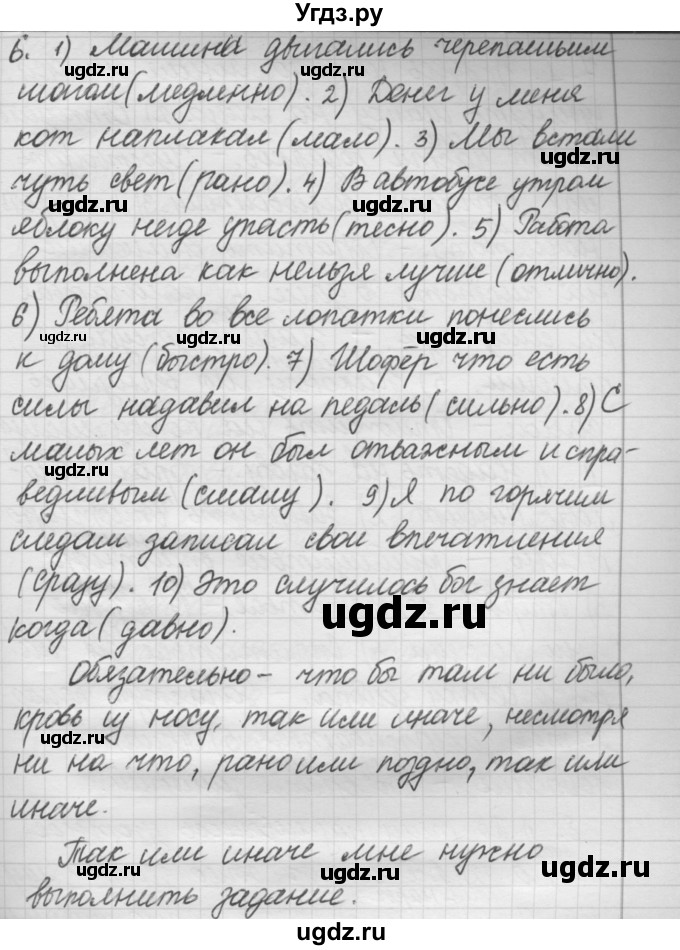 Угдз.ру
6. 1) Машина двигались черепашьим
ugdz.ru ugdz.ru
шагом (медленно). 2) Денег у меня
ugdz.ru
кот наплакал (мало). 3) Мы встали
ugdz.ru
чуть свет (рано). 4) В автобусе утром
ugdz.ru ugdz.ru
яблоку негде упасть (тесно). 5) Работа
ugdz.ru
выполнена как нельзя лучше (отлично).
6) Ребята во все лопатки понеслись
ugdz.ru ugdz.ru
к дому (быстро). 7) Шофёр что есть
силы надавил на педаль (сильно). 8) С
ugdz.ru
малых лет он был отважным и спра-
ugdz.ru
ведливым (смалу). 9) Я по горячим
ugdz.ru
следам записал свои впечатления
ugdz.ru
(сразу). 10) Это случилось бог знает
ugdz.ru
когда (давно).
ugdz.ru
Обязательно - что бы там ни было,
кровь из носу, так или иначе, несмотря
ugdz.ru
ни на что, рано или поздно, так или
ugdz.ru
иначе.
Так или иначе мне нужно
ugdz.ru ugdz.ru
выполнить задание.
ugdz.ru
ugdz.ru